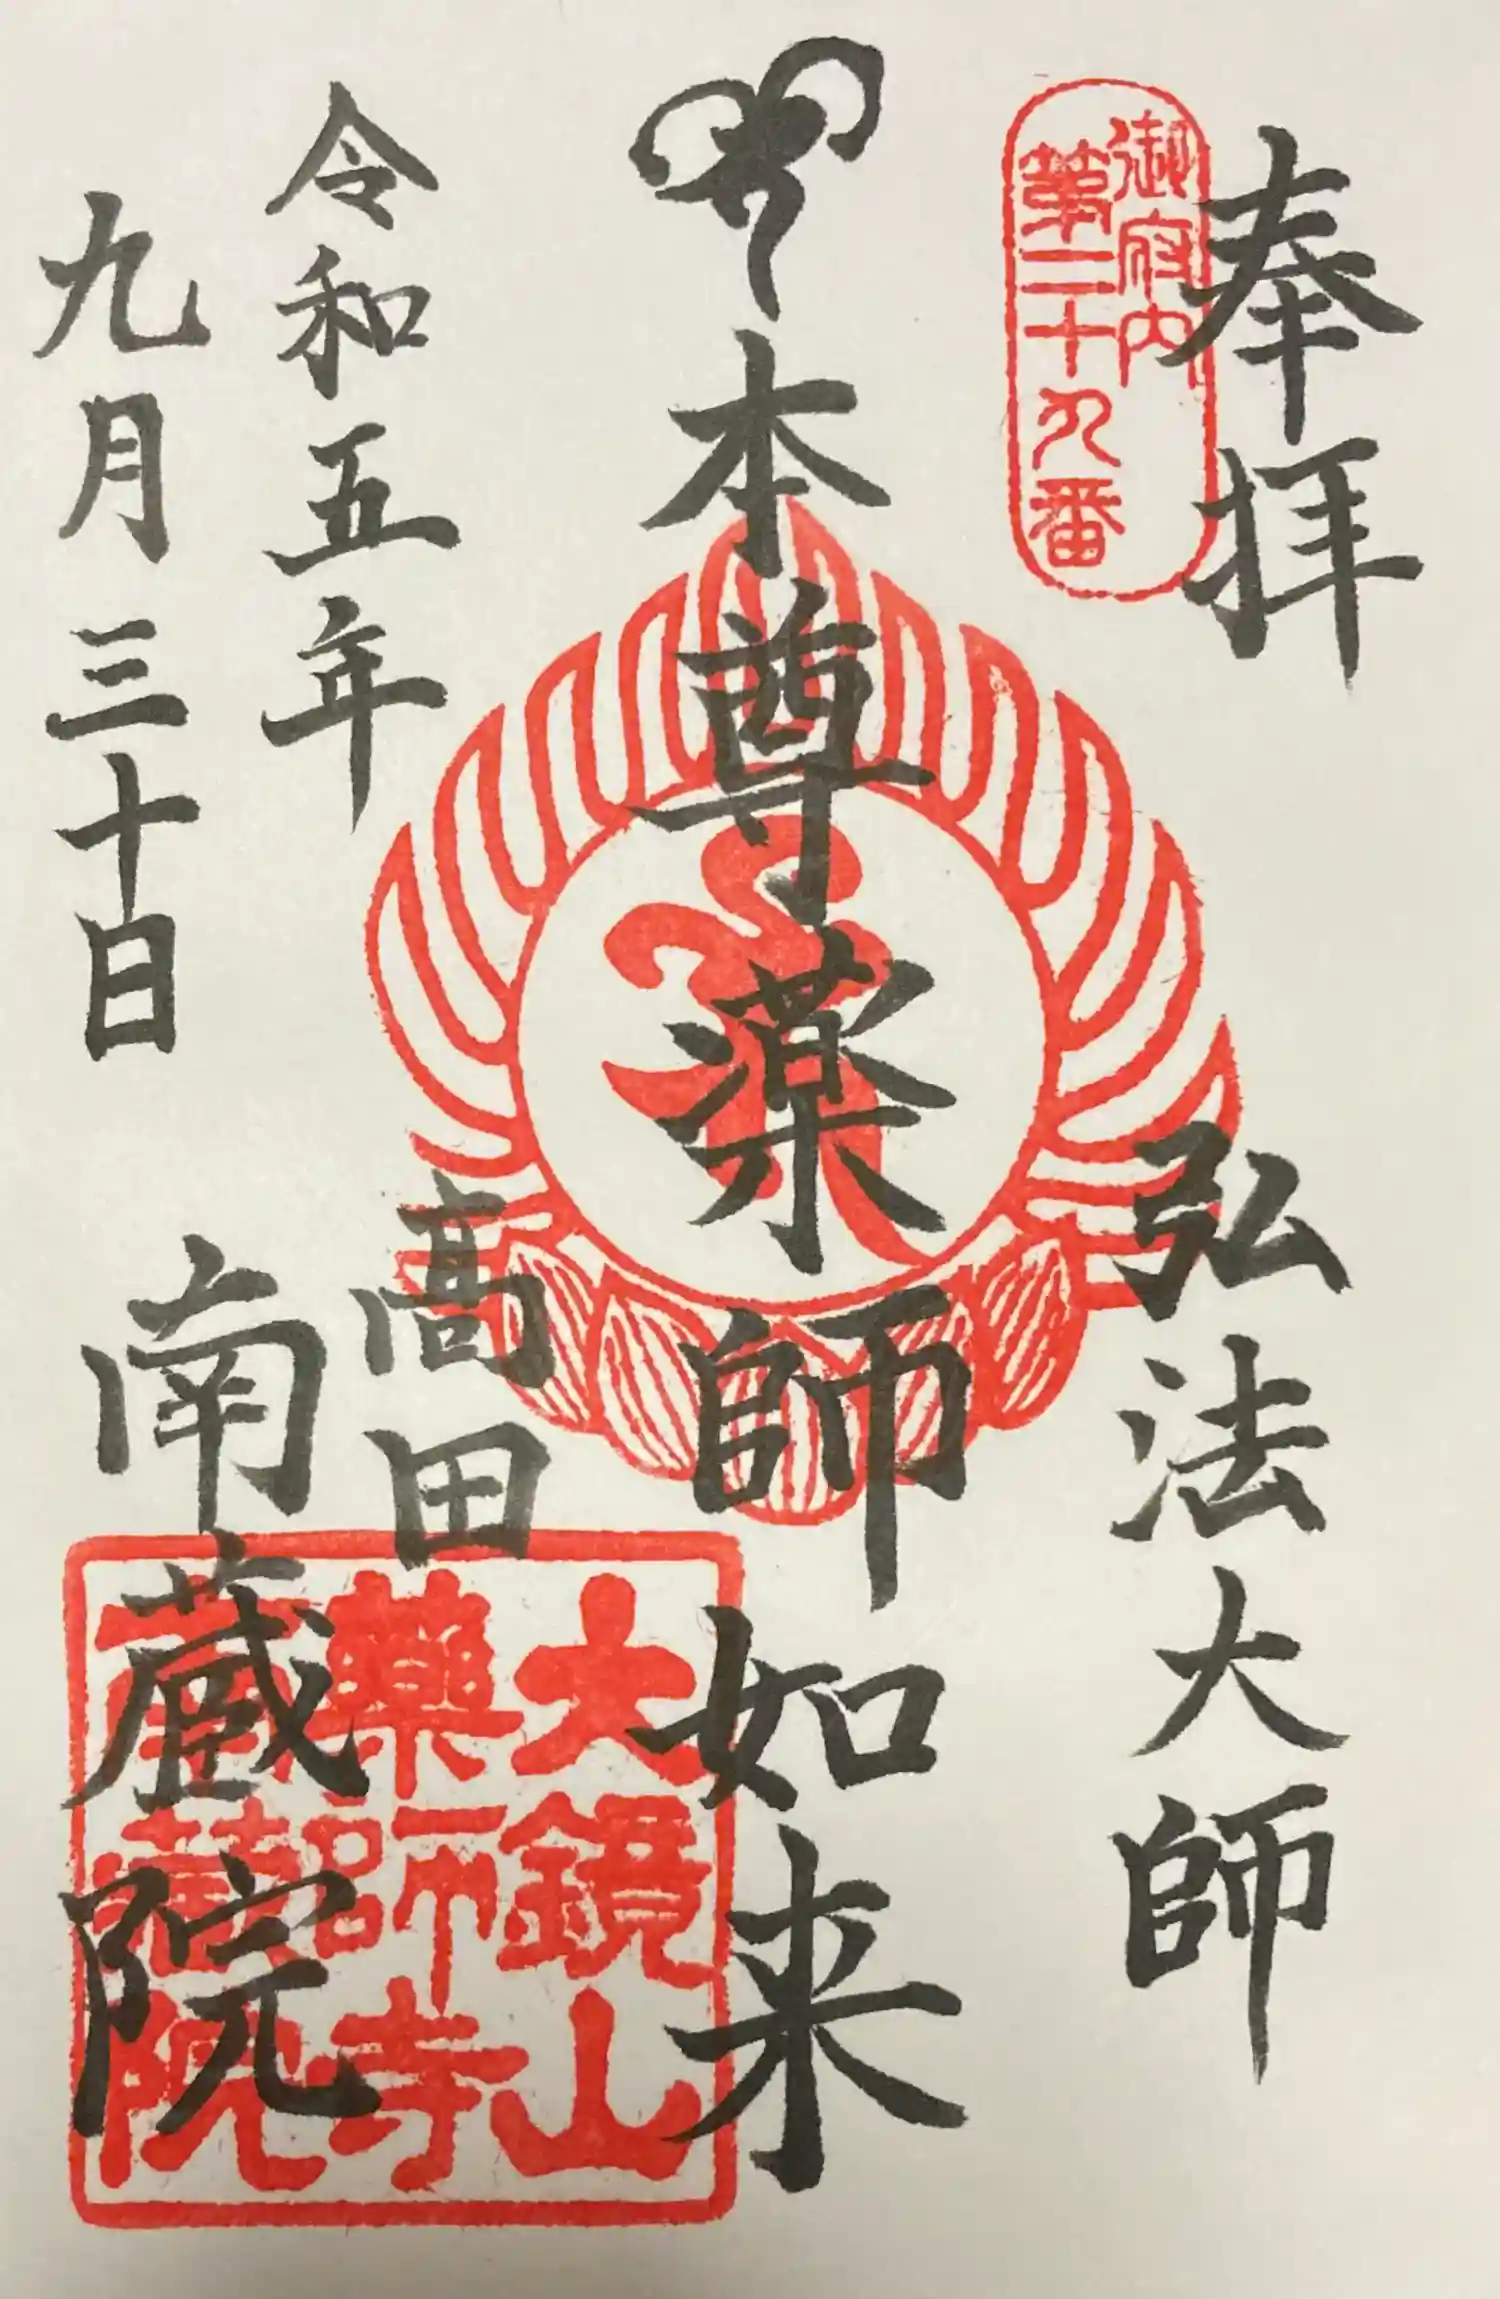 奉拝
御府内
第二十九番
弘法大師
本尊薬師如来
令和五年
九月三十日
高田
南蔵院
大鏡山
薬師寺
南蔵院